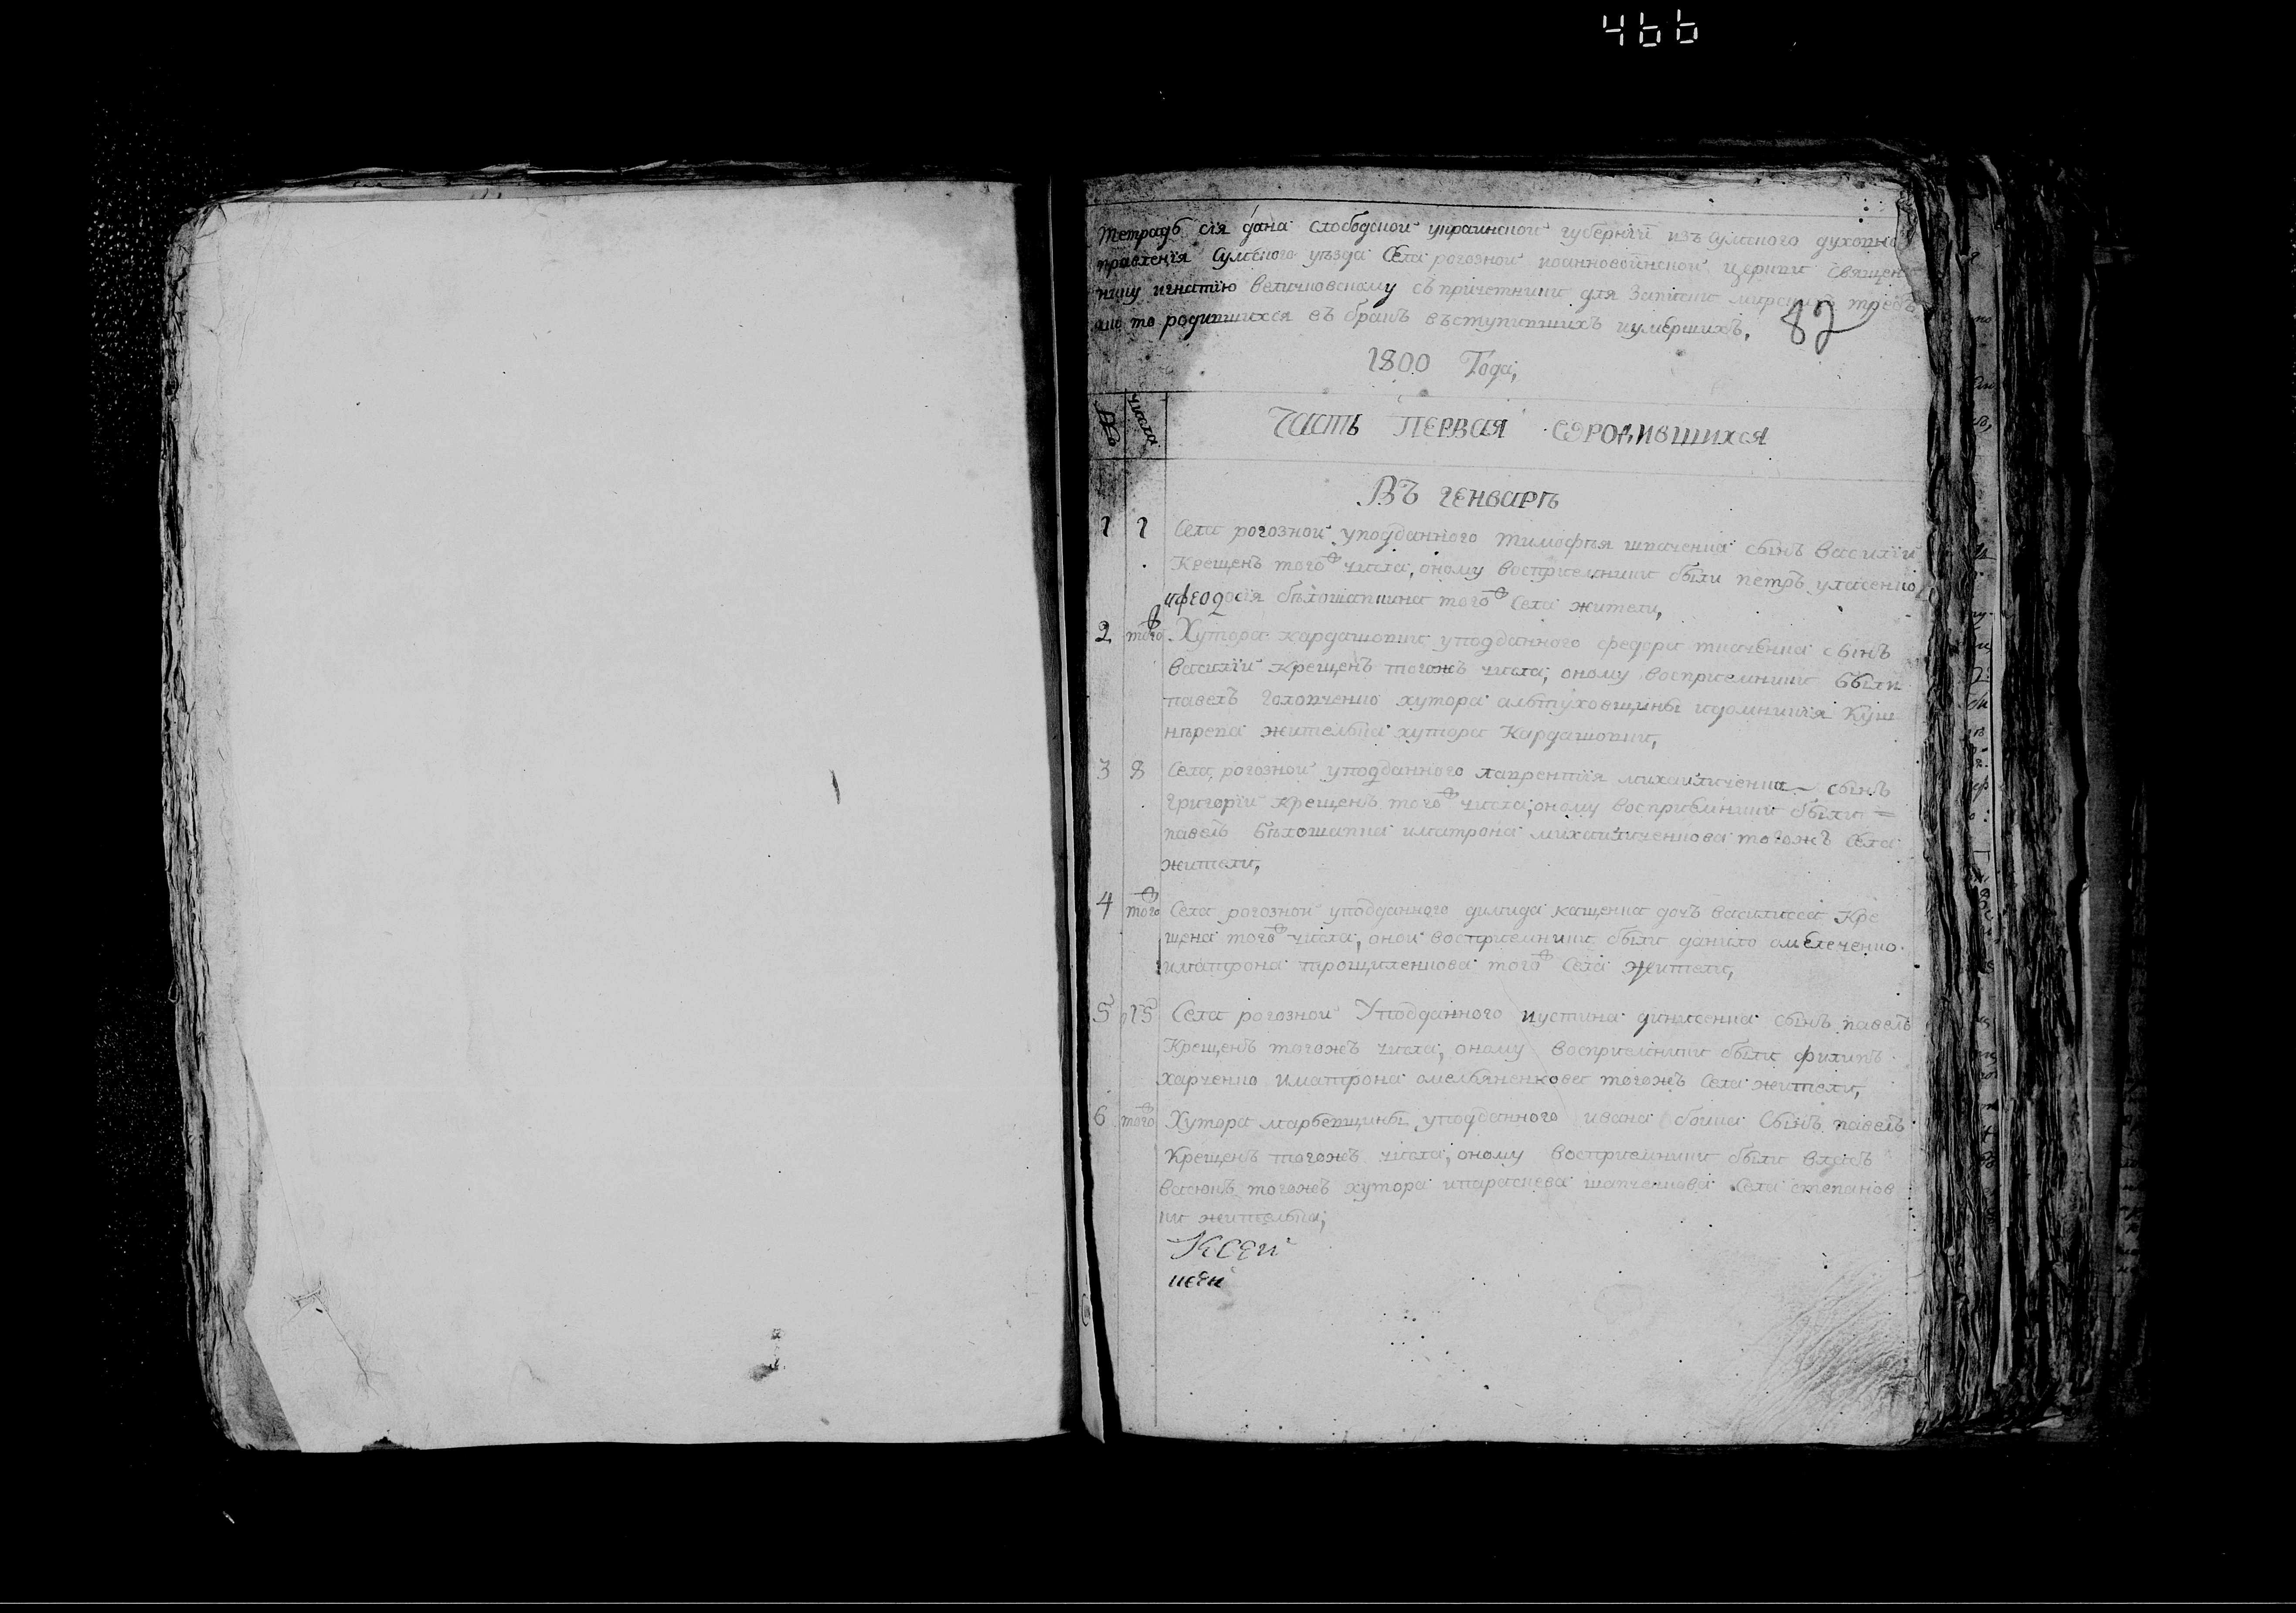 466
Тетрадь сія дана слободской украинской губерніи изъ сумского духовно
правленія сумского уезда села рогозной иоанновоинской церкви священ
нику игнатію величковскому съ причетники для записки мирскихъ требъ
ко то родившихся въ бракъ въступившихъ иумершихъ.
82
1800 Года,
№ числа Часть первая ѡродившихся
Въ генваръ
1 1 Села рогозной уподданного тимофѣя шпаченка сынъ василїй
крещенъ того ж числа, оному восприемники были петръ уласенко
ифеодосія бѣлошапкина того ж села жители,
2 того ж Хутора кардашовки уподданного федора ткаченка сынъ
василїй крещенъ тогожъ числа, оному восприемники были
павелъ голопченко хутора алтуховщины идомникія куш
нѣрева жителька хутора кардашовки,
3 8 Села рогозной уподданного лаврентїя михайличенка сынъ
григорїй крещенъ того ж числа, оному восприемники были =
павелъ бѣлошапка иматрона михайличенкова тогожъ села
жители,
4 того ж Села рогозной уподданного димида кащенка дочъ василиса кре
щена того ж числа, оной восприемники были данило омелеченко
иматрона трощиленкова того ж села жители,
5 15 Села рогозной уподданного иустина динисенка сынъ павелъ
крещенъ тогожъ числа, оному восприемники были филипъ
харченко иматрона омельяненкова тогожъ села жители,
6 того ж Хутора марбевщины уподданного ивана бойка сынъ павелъ
крещенъ тогожъ числа, оному восприемники были власъ
васюкъ тогожъ хутора ипараскева шапченкова села степанов
ки жителька,
К сей